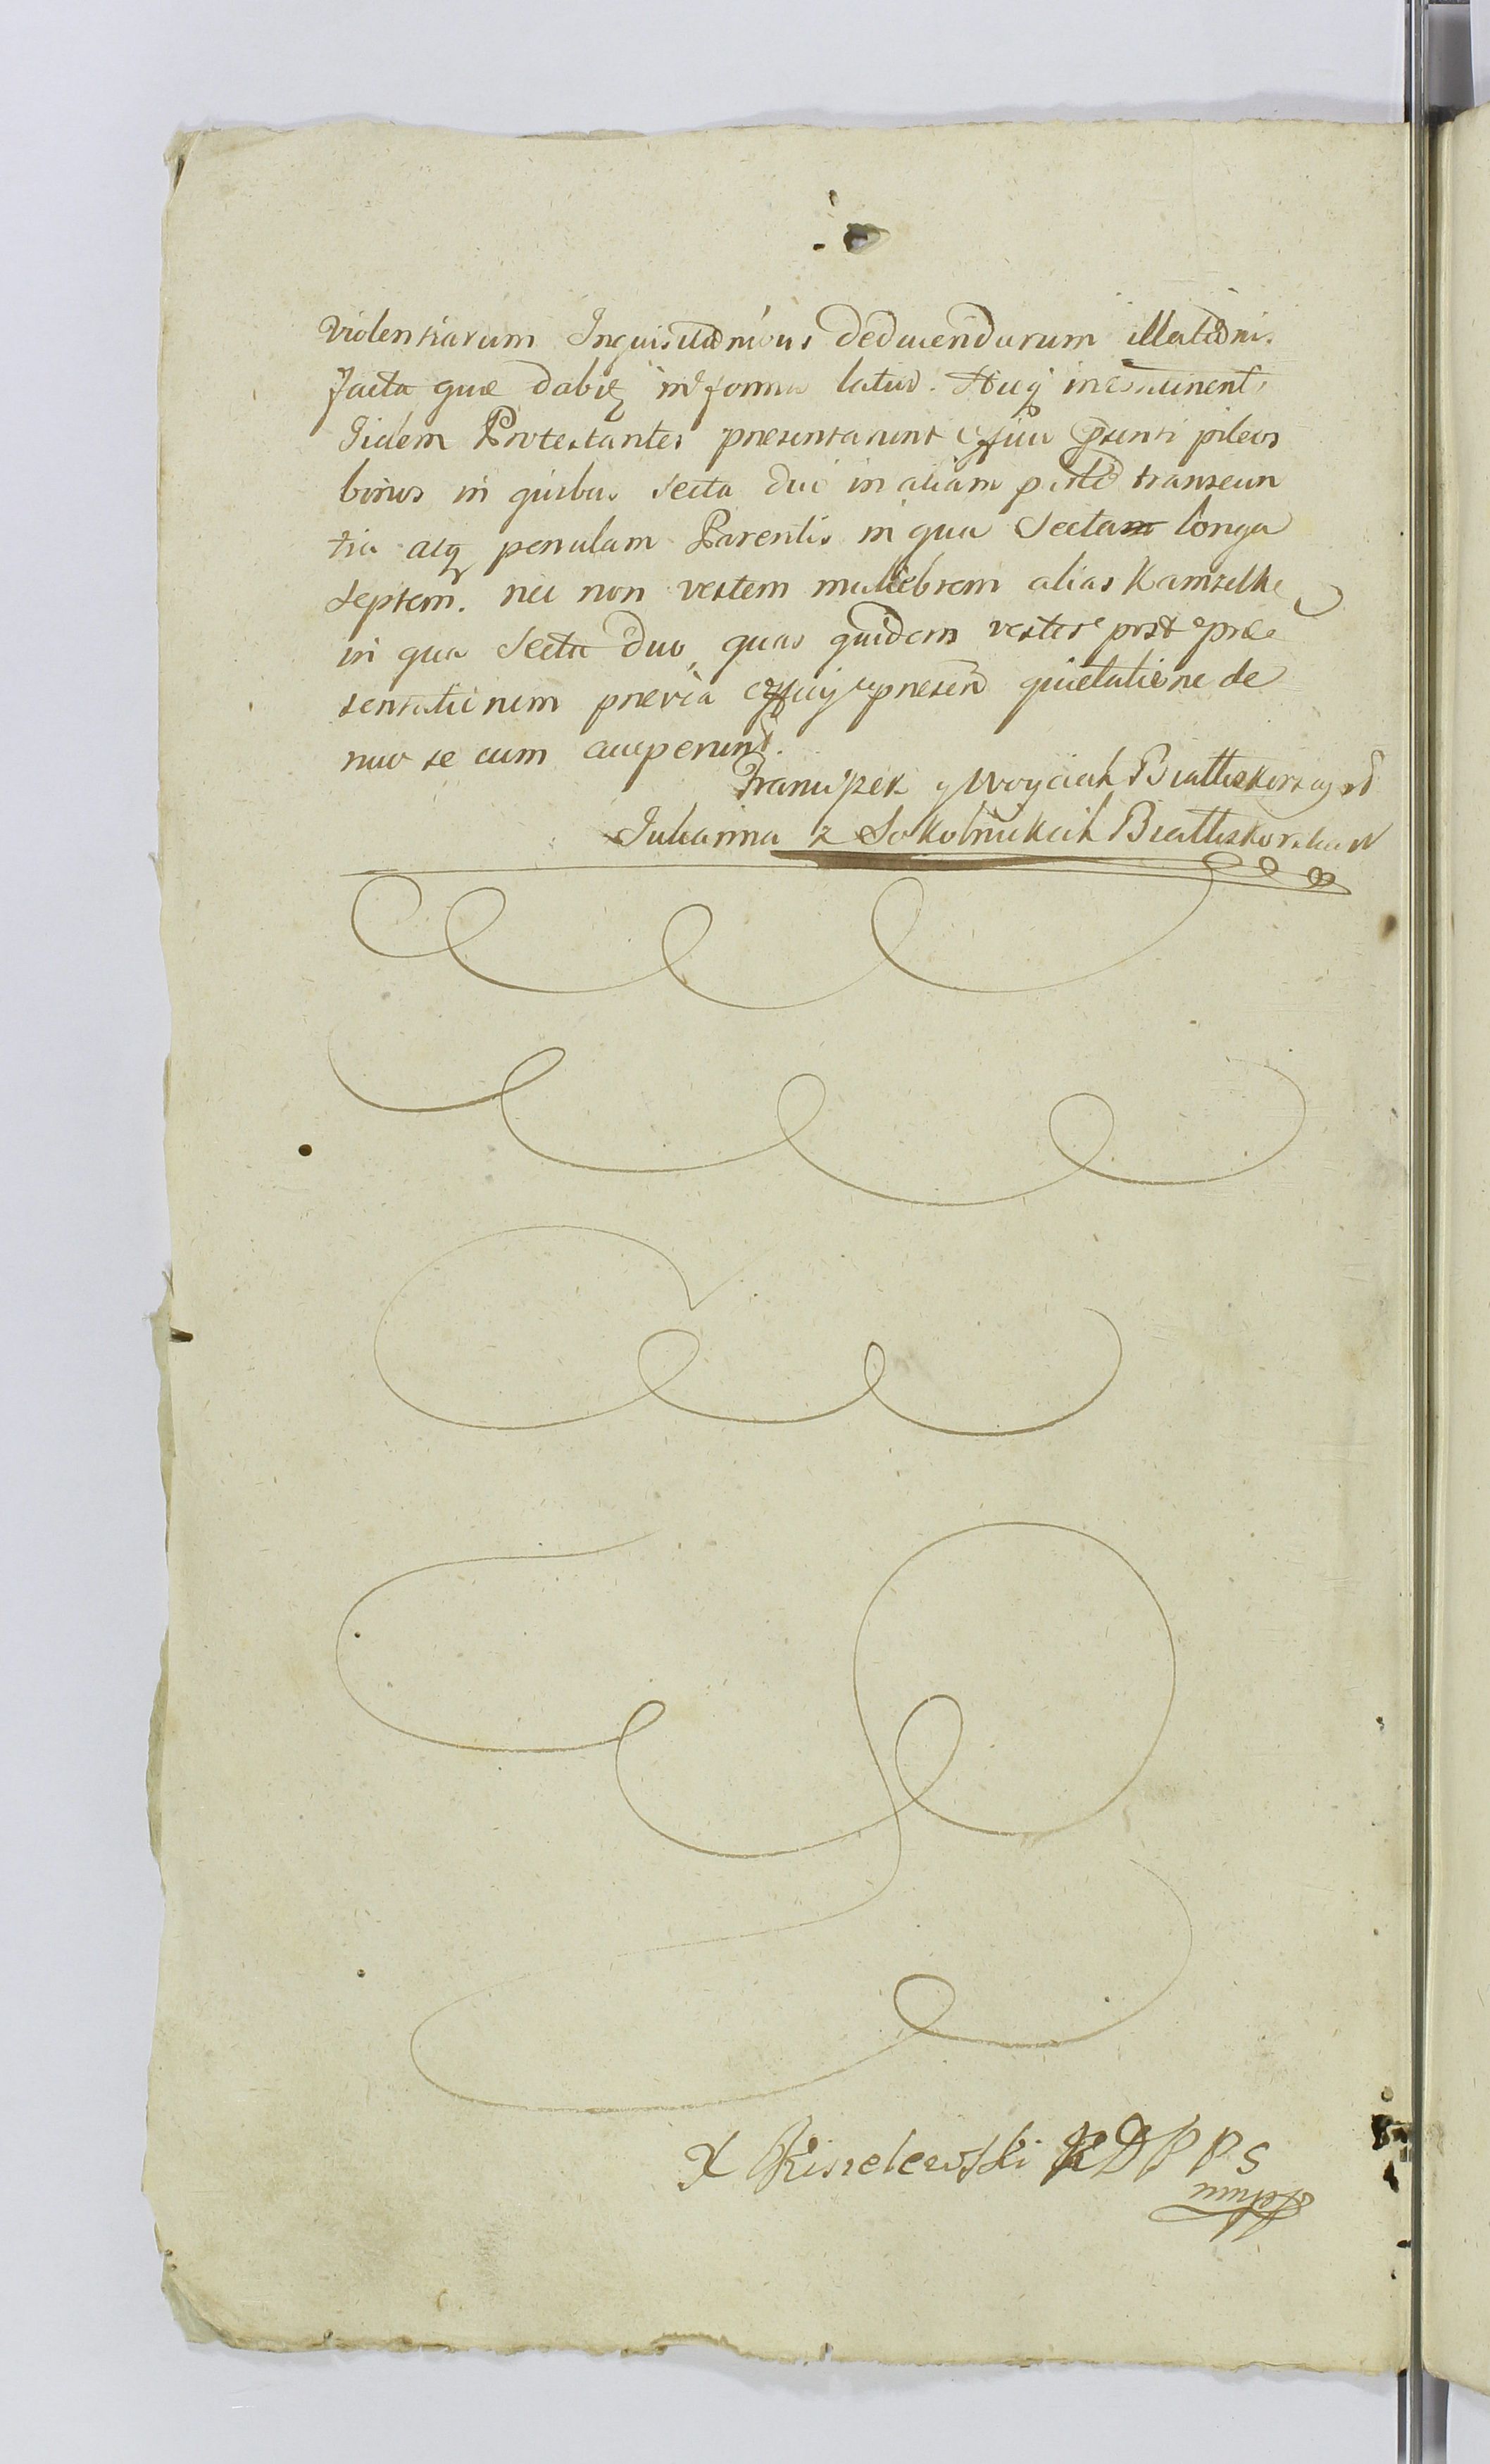 Violentiarum Inquisitionibus deducendarum illationis
facta quæ dabitq in forma latius. Atq incontinenti
Iidem Protestantes præsentarunt Officio Psenti pileos
binos in quibus Secta duo in aliam partem transeun
tia atq penulam Parentis in qua Secta longa
Septem. nec non vestem muliebrem alias Kamzelkę
in qua Secta duo, quas quidem vestes post præ
sentationem prævia Officij præsen quietatione de
nuo se cum acceperunt.
Franciszek y Woyciech Białłoskorscy
Julianna z Sokolnickich Białłoskorska
X Kiszelewski RDPPS
mmp